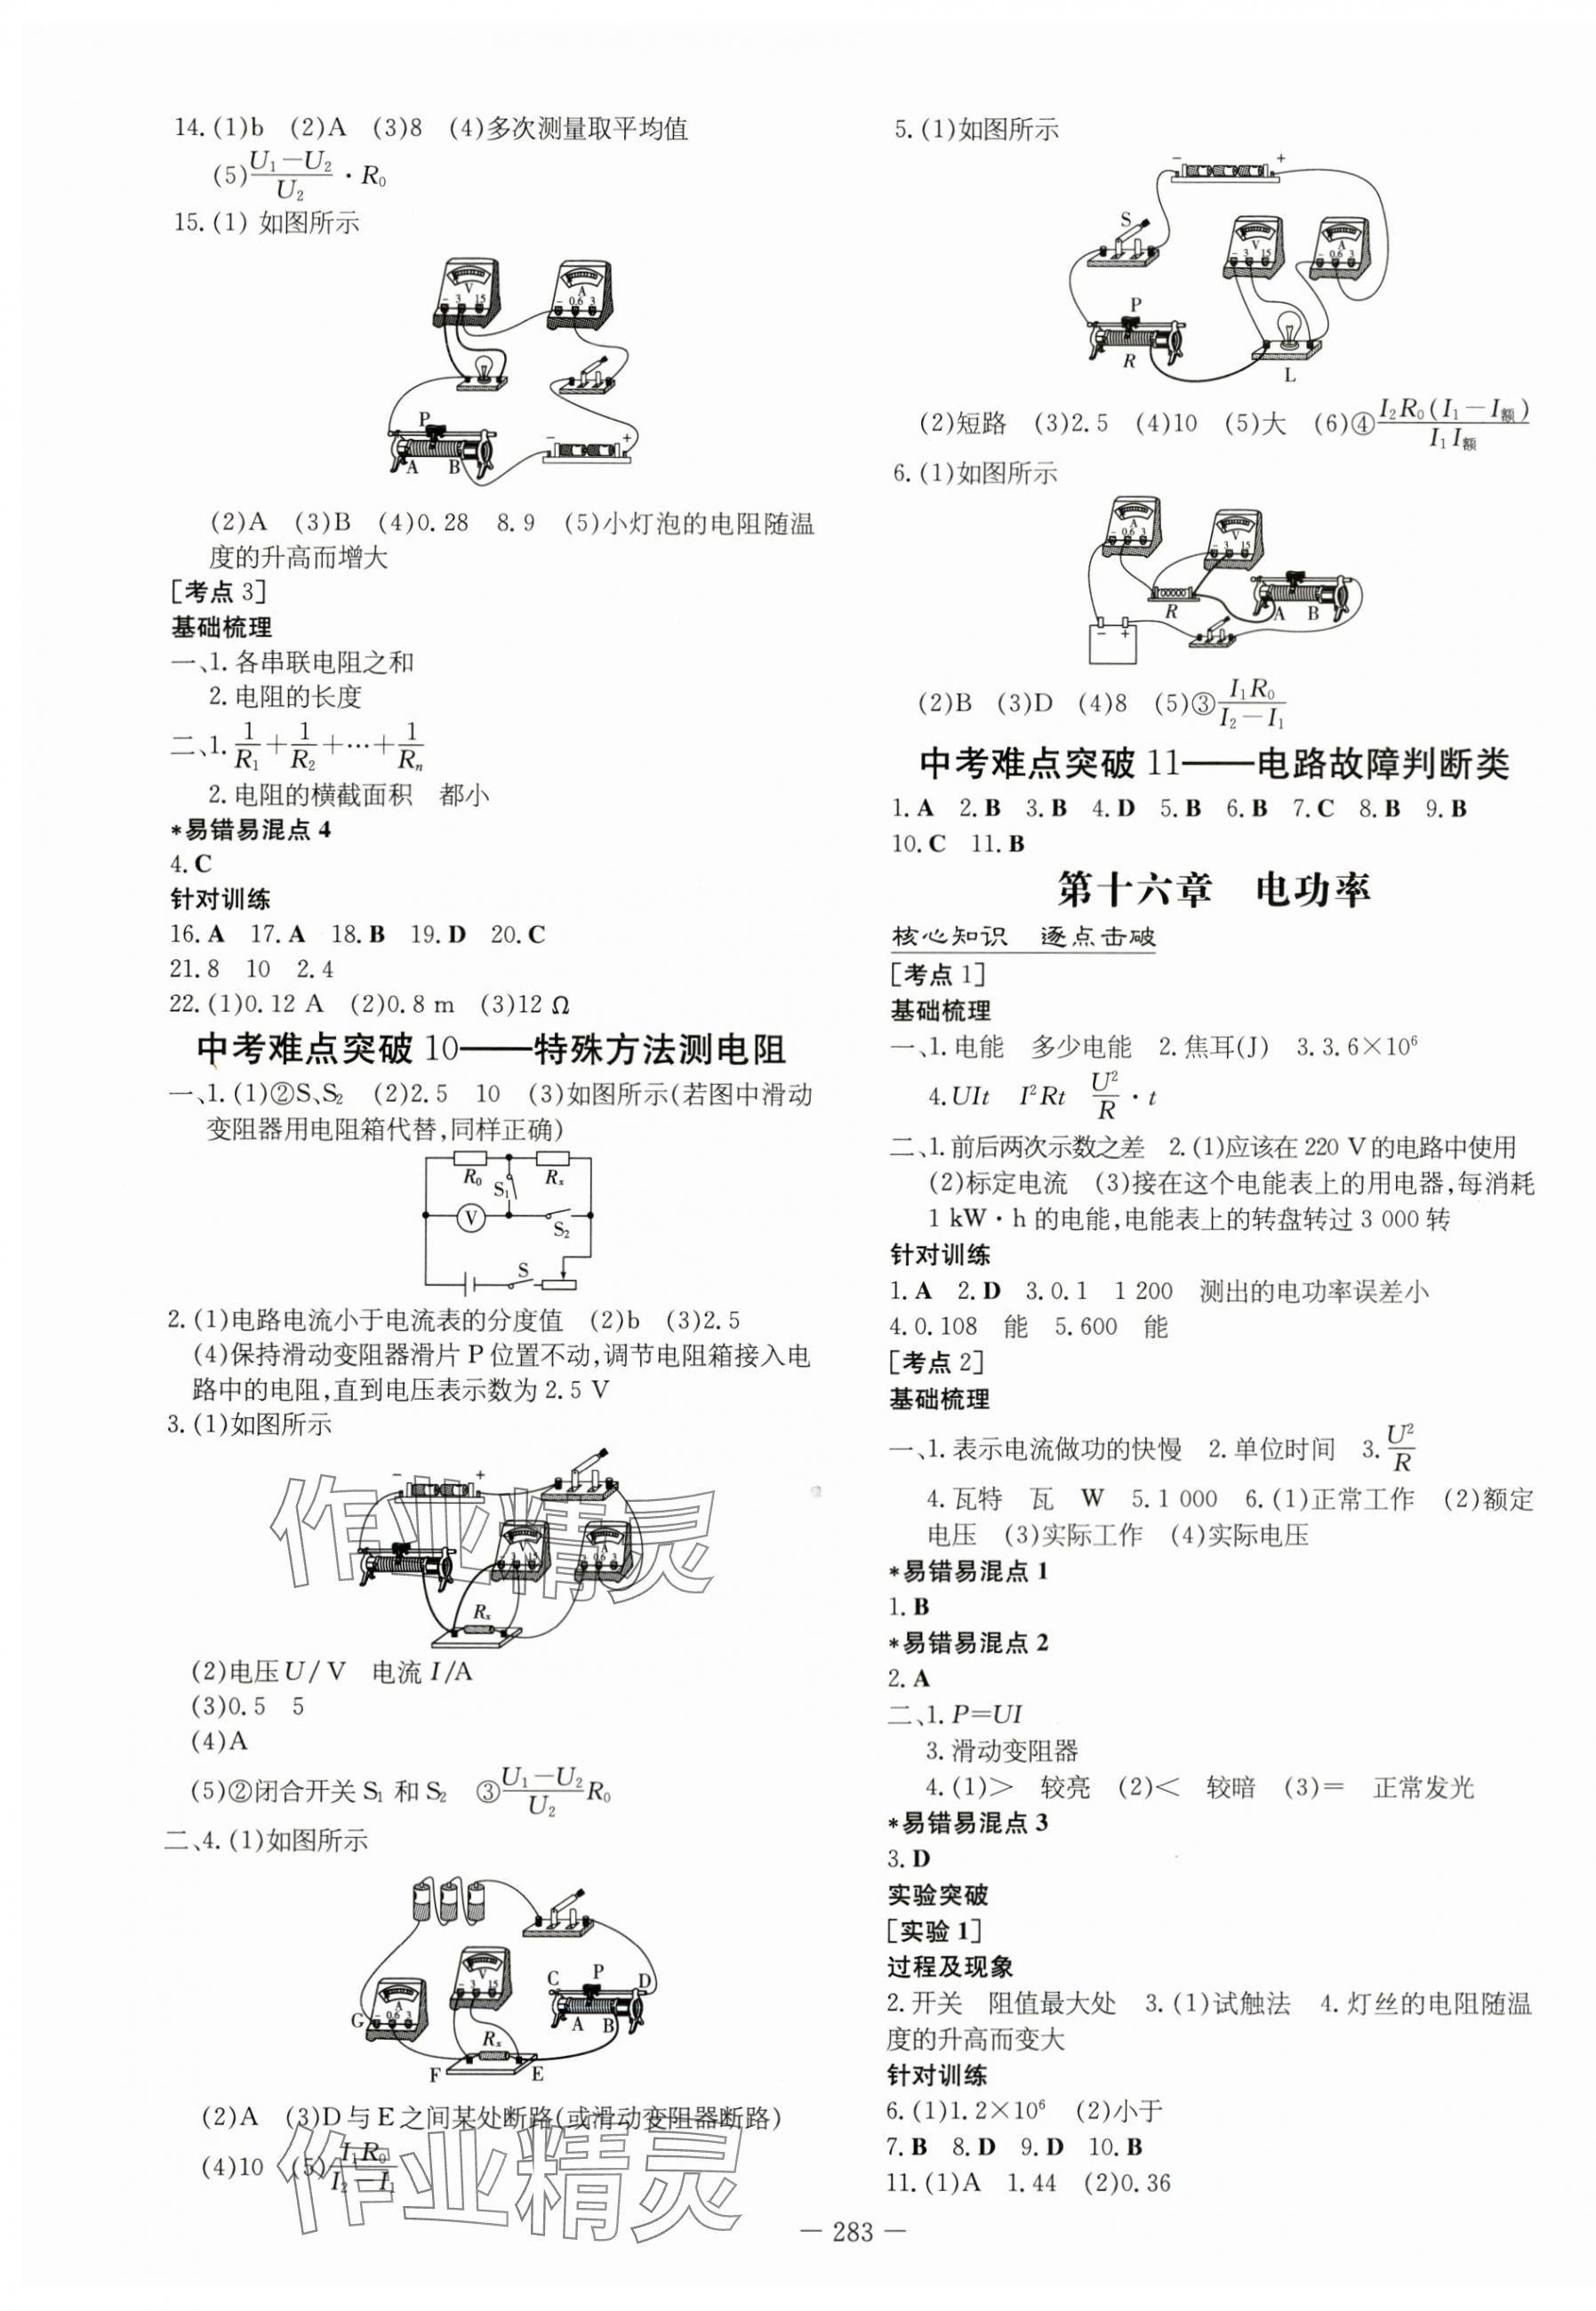 14.(1)b (2)A (3)8 (4)多次测量取平均值
(5)(U₁－U₂)/U₂·R₀
15.(1) 如图所示
V
－ 3 15
A
－ 0.6 3
P
A B
－ ＋
(2)A (3)B (4)0.28 8.9 (5)小灯泡的电阻随温
度的升高而增大
[考点 3]
基础梳理
一、1. 各串联电阻之和
2. 电阻的长度
二、1. 1/R₁＋1/R₂＋…＋1/Rₙ
2. 电阻的横截面积 都小
*易错易混点 4
4. C
针对训练
16. A 17. A 18. B 19. D 20. C
21. 8 10 2.4
22.(1)0.12 A (2)0.8 m (3)12 Ω
中考难点突破 10——特殊方法测电阻
一、1.(1)②S、S₂ (2)2.5 10 (3)如图所示(若图中滑动
变阻器用电阻箱代替,同样正确)
R₀ S₁ Rₓ
V S₂
S
2.(1)电路电流小于电流表的分度值 (2)b (3)2.5
(4)保持滑动变阻器滑片 P 位置不动,调节电阻箱接入电
路中的电阻,直到电压表示数为 2.5 V
3.(1)如图所示
－ ＋
V
－ 3 15
A
－ 0.6 3
Rₓ
作业精灵
(2)电压 U/V 电流 I/A
(3)0.5 5
(4)A
(5)②闭合开关 S₁ 和 S₂ ③(U₁－U₂)/U₂ R₀
二、4.(1)如图所示
V
－ 3 15
A
－ 0.6 3
C P D
G
A B
Rₓ
F E
(2)A (3)D 与 E 之间某处断路(或滑动变阻器断路)
(4)10 (5)I₁R₀/(I₂－I₁)
作业精灵
5.(1)如图所示
－ ＋
S
V
－ 3 15
A
－ 0.6 3
P
R
L
(2)短路 (3)2.5 (4)10 (5)大 (6)④I₂R₀(I₁－I额)/(I₁I额)
6.(1)如图所示
A
－ 0.6 3
V
－ 3 15
R
A B
－ ＋
(2)B (3)D (4)8 (5)③I₁R₀/(I₂－I₁)
中考难点突破 11——电路故障判断类
1. A 2. B 3. B 4. D 5. B 6. B 7. C 8. B 9. B
10. C 11. B
第十六章 电功率
核心知识 逐点击破
[考点 1]
基础梳理
一、1. 电能 多少电能 2. 焦耳(J) 3. 3.6×10⁶
4. UIt I²Rt U²/R·t
二、1. 前后两次示数之差 2.(1)应该在 220 V 的电路中使用
(2)标定电流 (3)接在这个电能表上的用电器,每消耗
1 kW·h 的电能,电能表上的转盘转过 3 000 转
针对训练
1. A 2. D 3. 0.1 1 200 测出的电功率误差小
4. 0.108 能 5. 600 能
[考点 2]
基础梳理
一、1. 表示电流做功的快慢 2. 单位时间 3. U²/R
4. 瓦特 瓦 W 5. 1 000 6.(1)正常工作 (2)额定
电压 (3)实际工作 (4)实际电压
*易错易混点 1
1. B
*易错易混点 2
2. A
二、1. P＝UI
3. 滑动变阻器
4.(1)＞ 较亮 (2)＜ 较暗 (3)＝ 正常发光
*易错易混点 3
3. D
实验突破
[实验 1]
过程及现象
2. 开关 阻值最大处 3.(1)试触法 4. 灯丝的电阻随温
度的升高而变大
针对训练
6.(1)1.2×10⁶ (2)小于
7. B 8. D 9. D 10. B
11.(1)A 1.44 (2)0.36
— 283 —